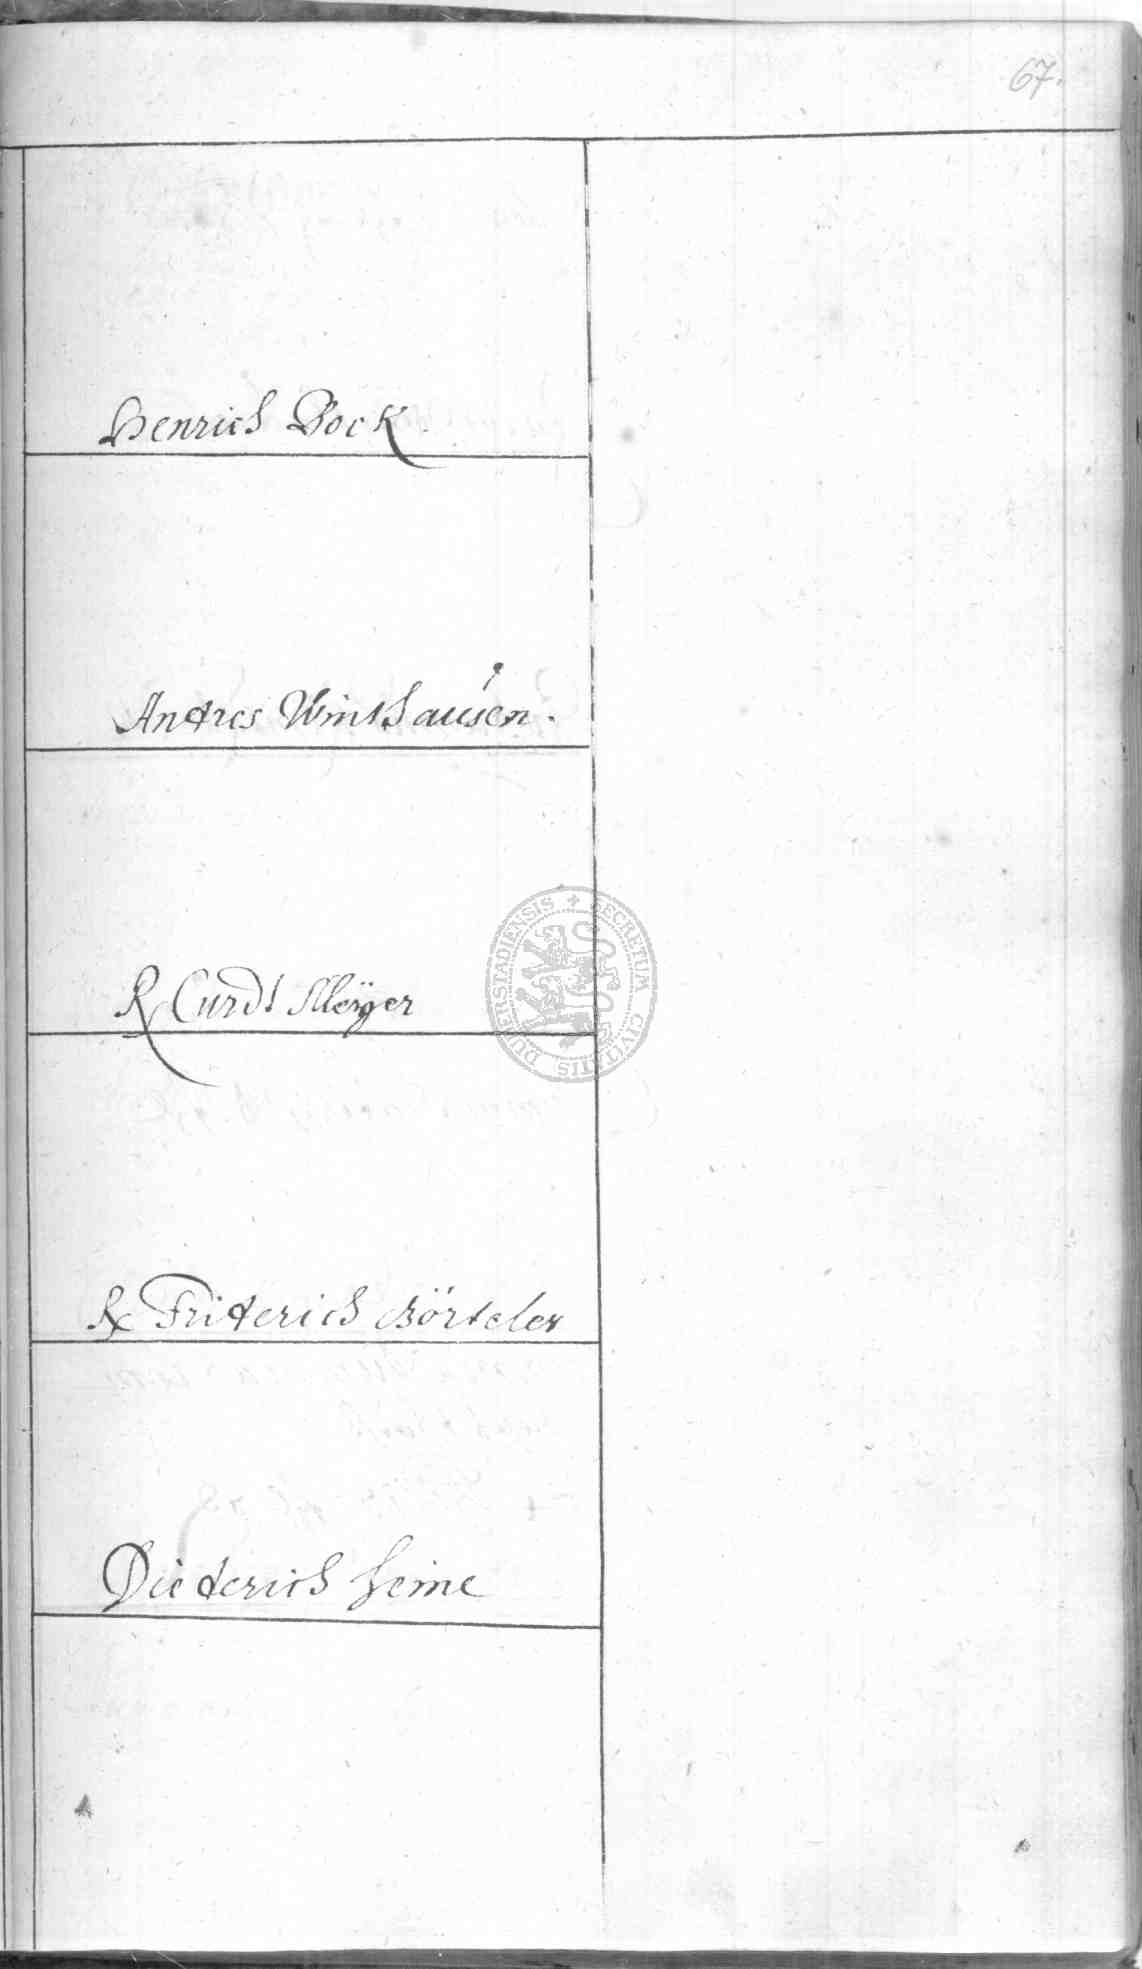 67.
Henrich Bock
Andres Winthausen.
R Curdt Meÿer
R Friderich Börteler
Diederich Heine
SECRETUM CIVITATIS DUDERSTADIENSIS